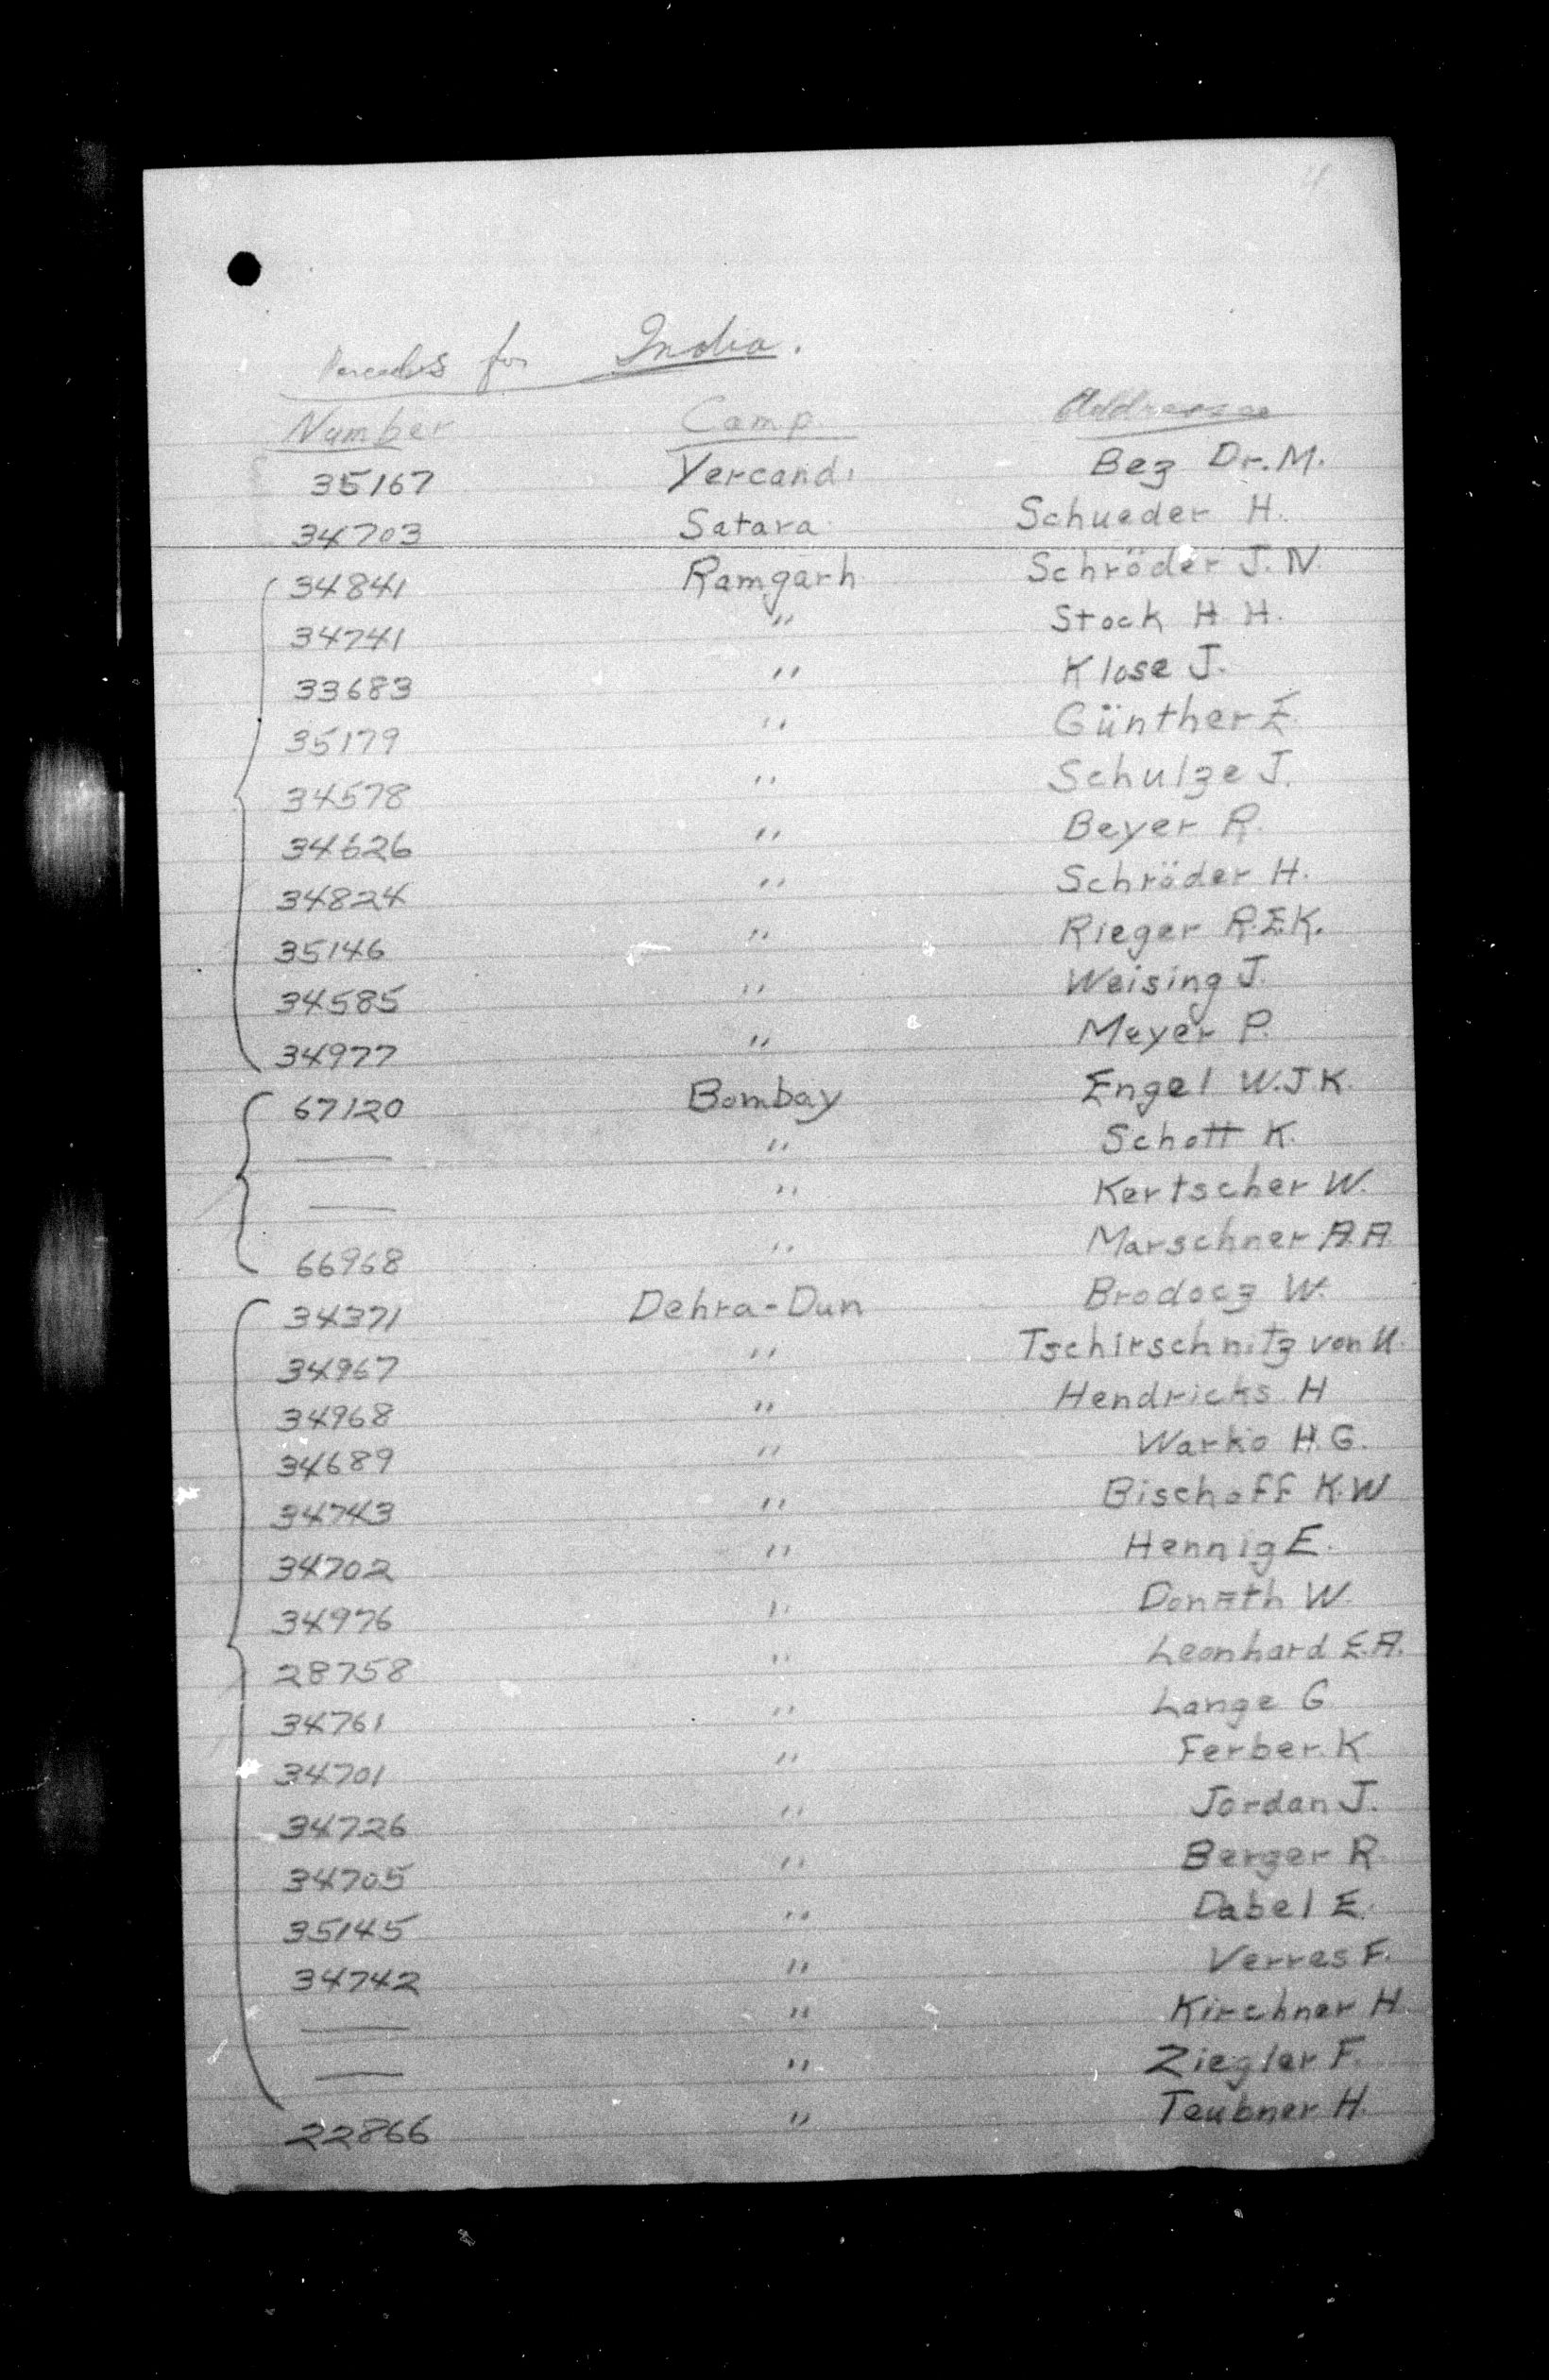 Parcels for India.
Number Camp. Addressee
35167 Yercand. Bez Dr. M.
34703 Satara Schueder H.
34841 Ramgarh Schröder J. N.
34741 " Stock H H.
33683 " Klose J.
35179 " Günther E.
34578 " Schulze J.
34626 " Beyer R.
34824 " Schröder H.
35146 " Rieger R.E.K.
34585 " Weising J.
34977 " Meyer P.
67120 Bombay Engel W.J.K.
— " Schott K.
— " Kertscher W.
66968 " Marschner A.A.
34371 Dehra-Dun Brodocz W.
34967 " Tschirschnitz von U.
34968 " Hendricks H
34689 " Warko H.G.
34743 " Bischoff K.W
34702 " Hennig E.
34976 " Donath W.
28758 " Leonhard E.A.
34761 " Lange G
34701 " Ferber K
34726 " Jordan J.
34705 " Berger R.
35145 " Dabel E.
34742 " Verres F.
— " Kirchner H.
— " Ziegler F.
22866 " Teubner H.